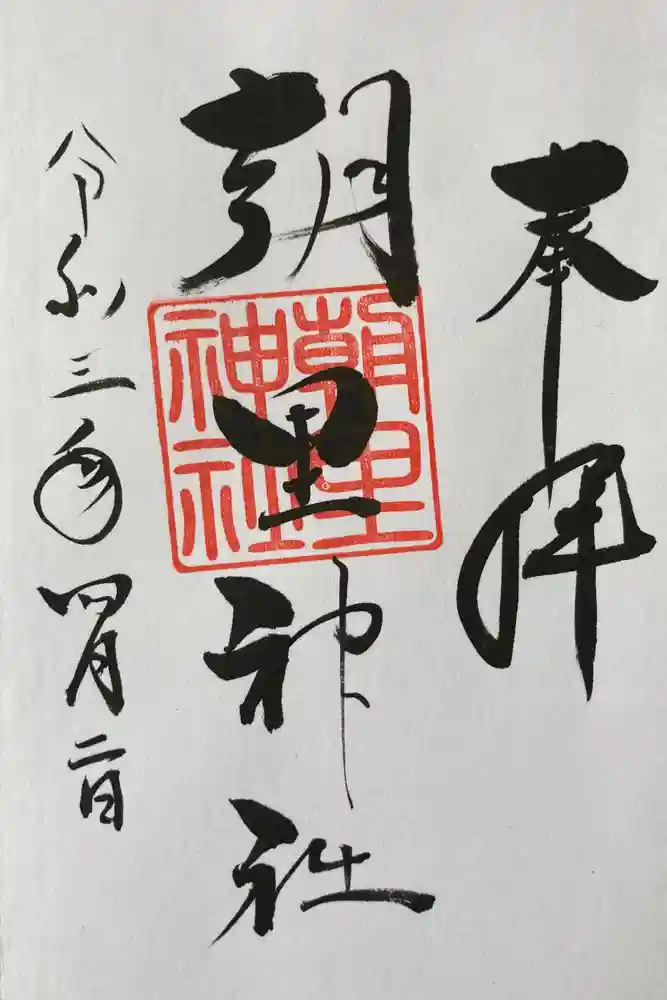 奉拝
朝里神社
朝里
神社
令和三年四月二日